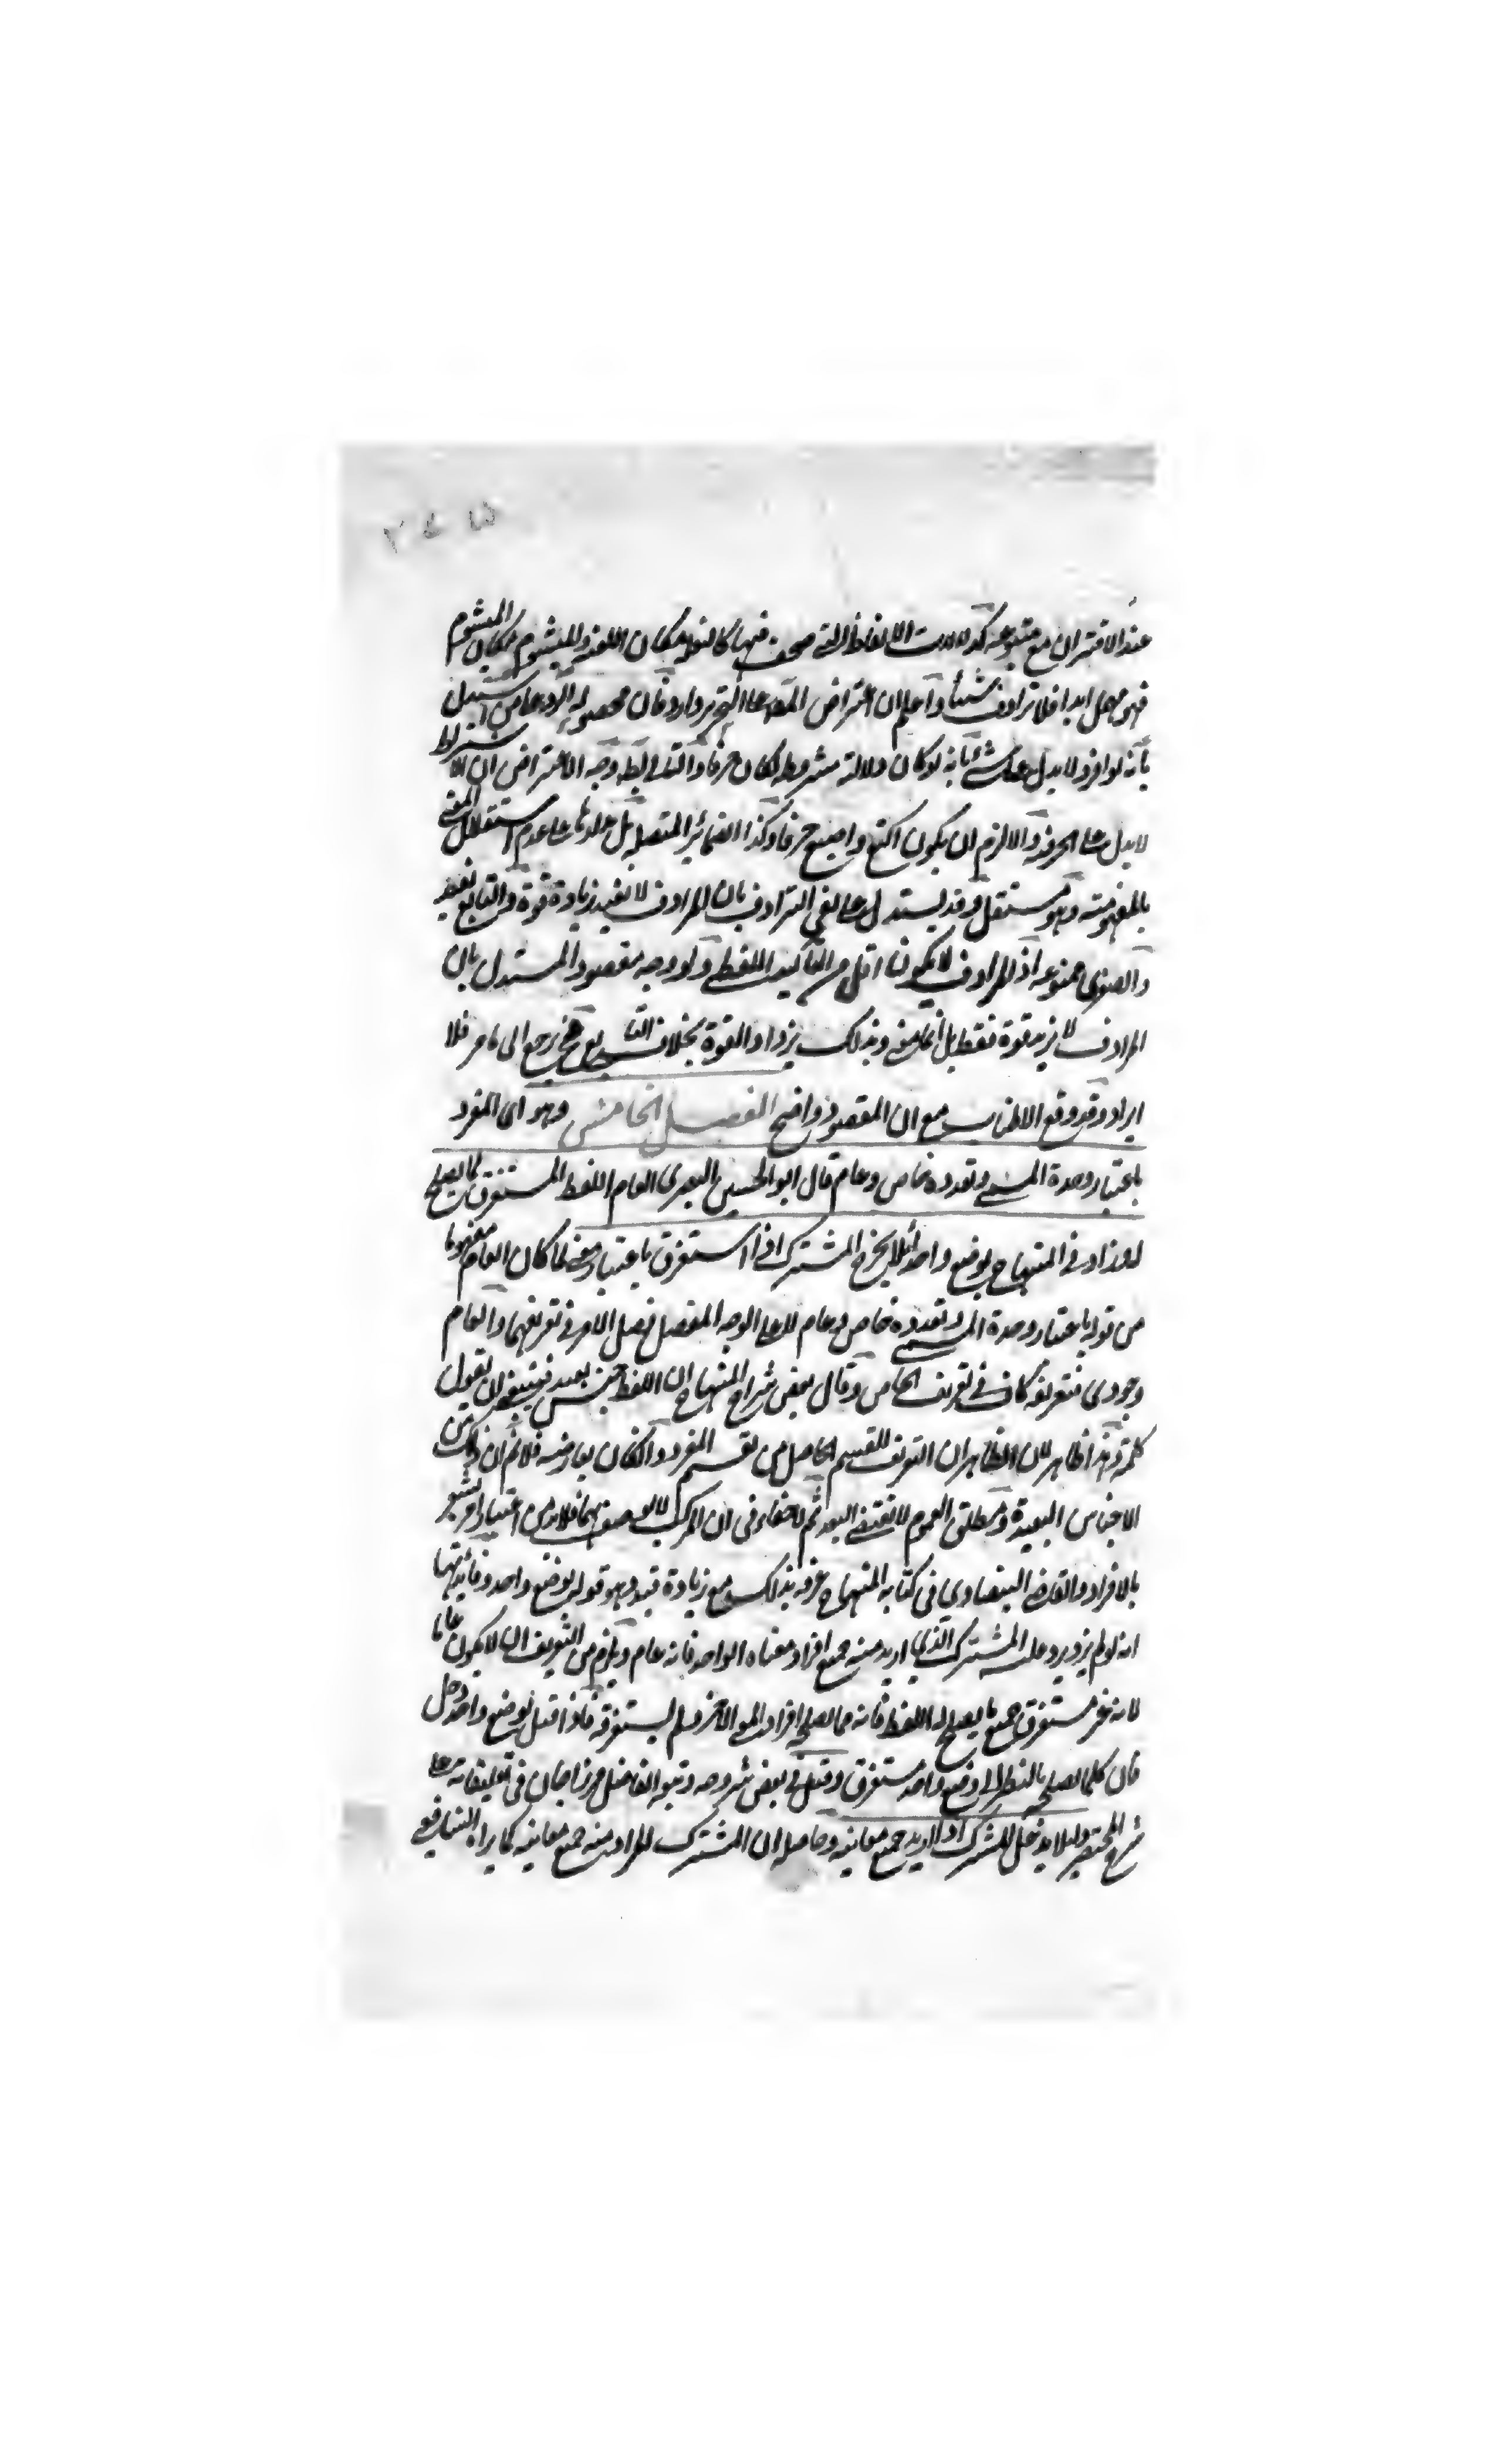 عند الاقتران مع متبوعه كدلالت الالفاظ التي صحف فيها كالنوله مكان اللغة والميشوم مكان المشوم
فهو مهمل ابدا فلا ترادف شيئا واعلم ان اعتراض المصه على التحرير وارد فان محصوله الرد على من استدل
بانه لو افرد لا يدل على شئ بانه لو كان دلالته مشروطة لكان حرفا والتالي بط وجه الاعتراض ان الاشتراط
لا يدل على الحرفية والا لزم ان يكون اكتع وابصع حرفا وكذا الضمائر المتصلة بل مدارها على عدم استقلال المعنى
بالمفهومية وهو مستقل وقد يستدل على نفي الترادف بان المرادف لا يفيد زيادة قوة والتابع يفيد
والصغرى ممنوعة اذ المرادف لا يكون اقل من التاكيد اللفظي ولو وجه مقصود المستدل بان
المرادف لا يزيد قوة فقط بل المعنى وبذلك يزداد القوة بخلاف التابع فح يرجع الى ما مر فلا
ايراد وقد وقع الاطناب مع ان المقصود واضح الفصل الخامس وهو اى المفرد
باعتبار وحدة المسمى وتعدده خاص وعام قال ابو الحسين البصرى العام اللفظ المستغرق لما يصلح
له وزاد في المنهاج بوضع واحد لئلا يخرج المشترك اذا استغرق باعتبار معنى لما كان العام مفهوما
من قوله باعتبار وحدة المسمى وتعدده خاص وعام لا على الوجه المفصل فصل الامر في تعريفهما والعام
وجودى فتعريفه كاف في تعريف الخاص وقال بعض شراح المنهاج ان اللفظ جنس بعيد فينبغي ان يقول
كلمة وهذا ظاهر لان الظاهر ان التعريف للقسم الحاصل من تقسيم المفرد وان كان يعارضه فلا ثم ان ذلك من
الاجناس البعيدة ومطلق العموم لا يقتضي البعد ثم لا خفاء في ان المركب لا يوصف بهما فلا بد من اعتبار امر يشعر
بالافراد والقاضي البيضاوى في كتابه المنهاج عرفه بذلك مع زيادة قيد وهو قوله بوضع واحد وفائدتها
انه لو لم يزد يرد عليه المشترك الذي اريد منه جميع افراد معناه الواحد فانه عام ويلزم من التعريف ان لا يكون عاما
لانه غير مستغرق جميع ما يصلح له اللفظ فانه مما يصلح افراد المعنى الاخر ولم يستغرقه فاذا قيل بوضع واحد دخل
فان كلما يصلح بالنظر الى وضع واحد مستغرق وقيل في بعض شروحه وتبعه الفاضل ميرزا جان في تعليقاته على
شرح المختصر ولئلا يدخل المشترك اذا اريد جميع معانيه وحاصله ان المشترك المراد منه جميع معانيه كما يراه الشافعي